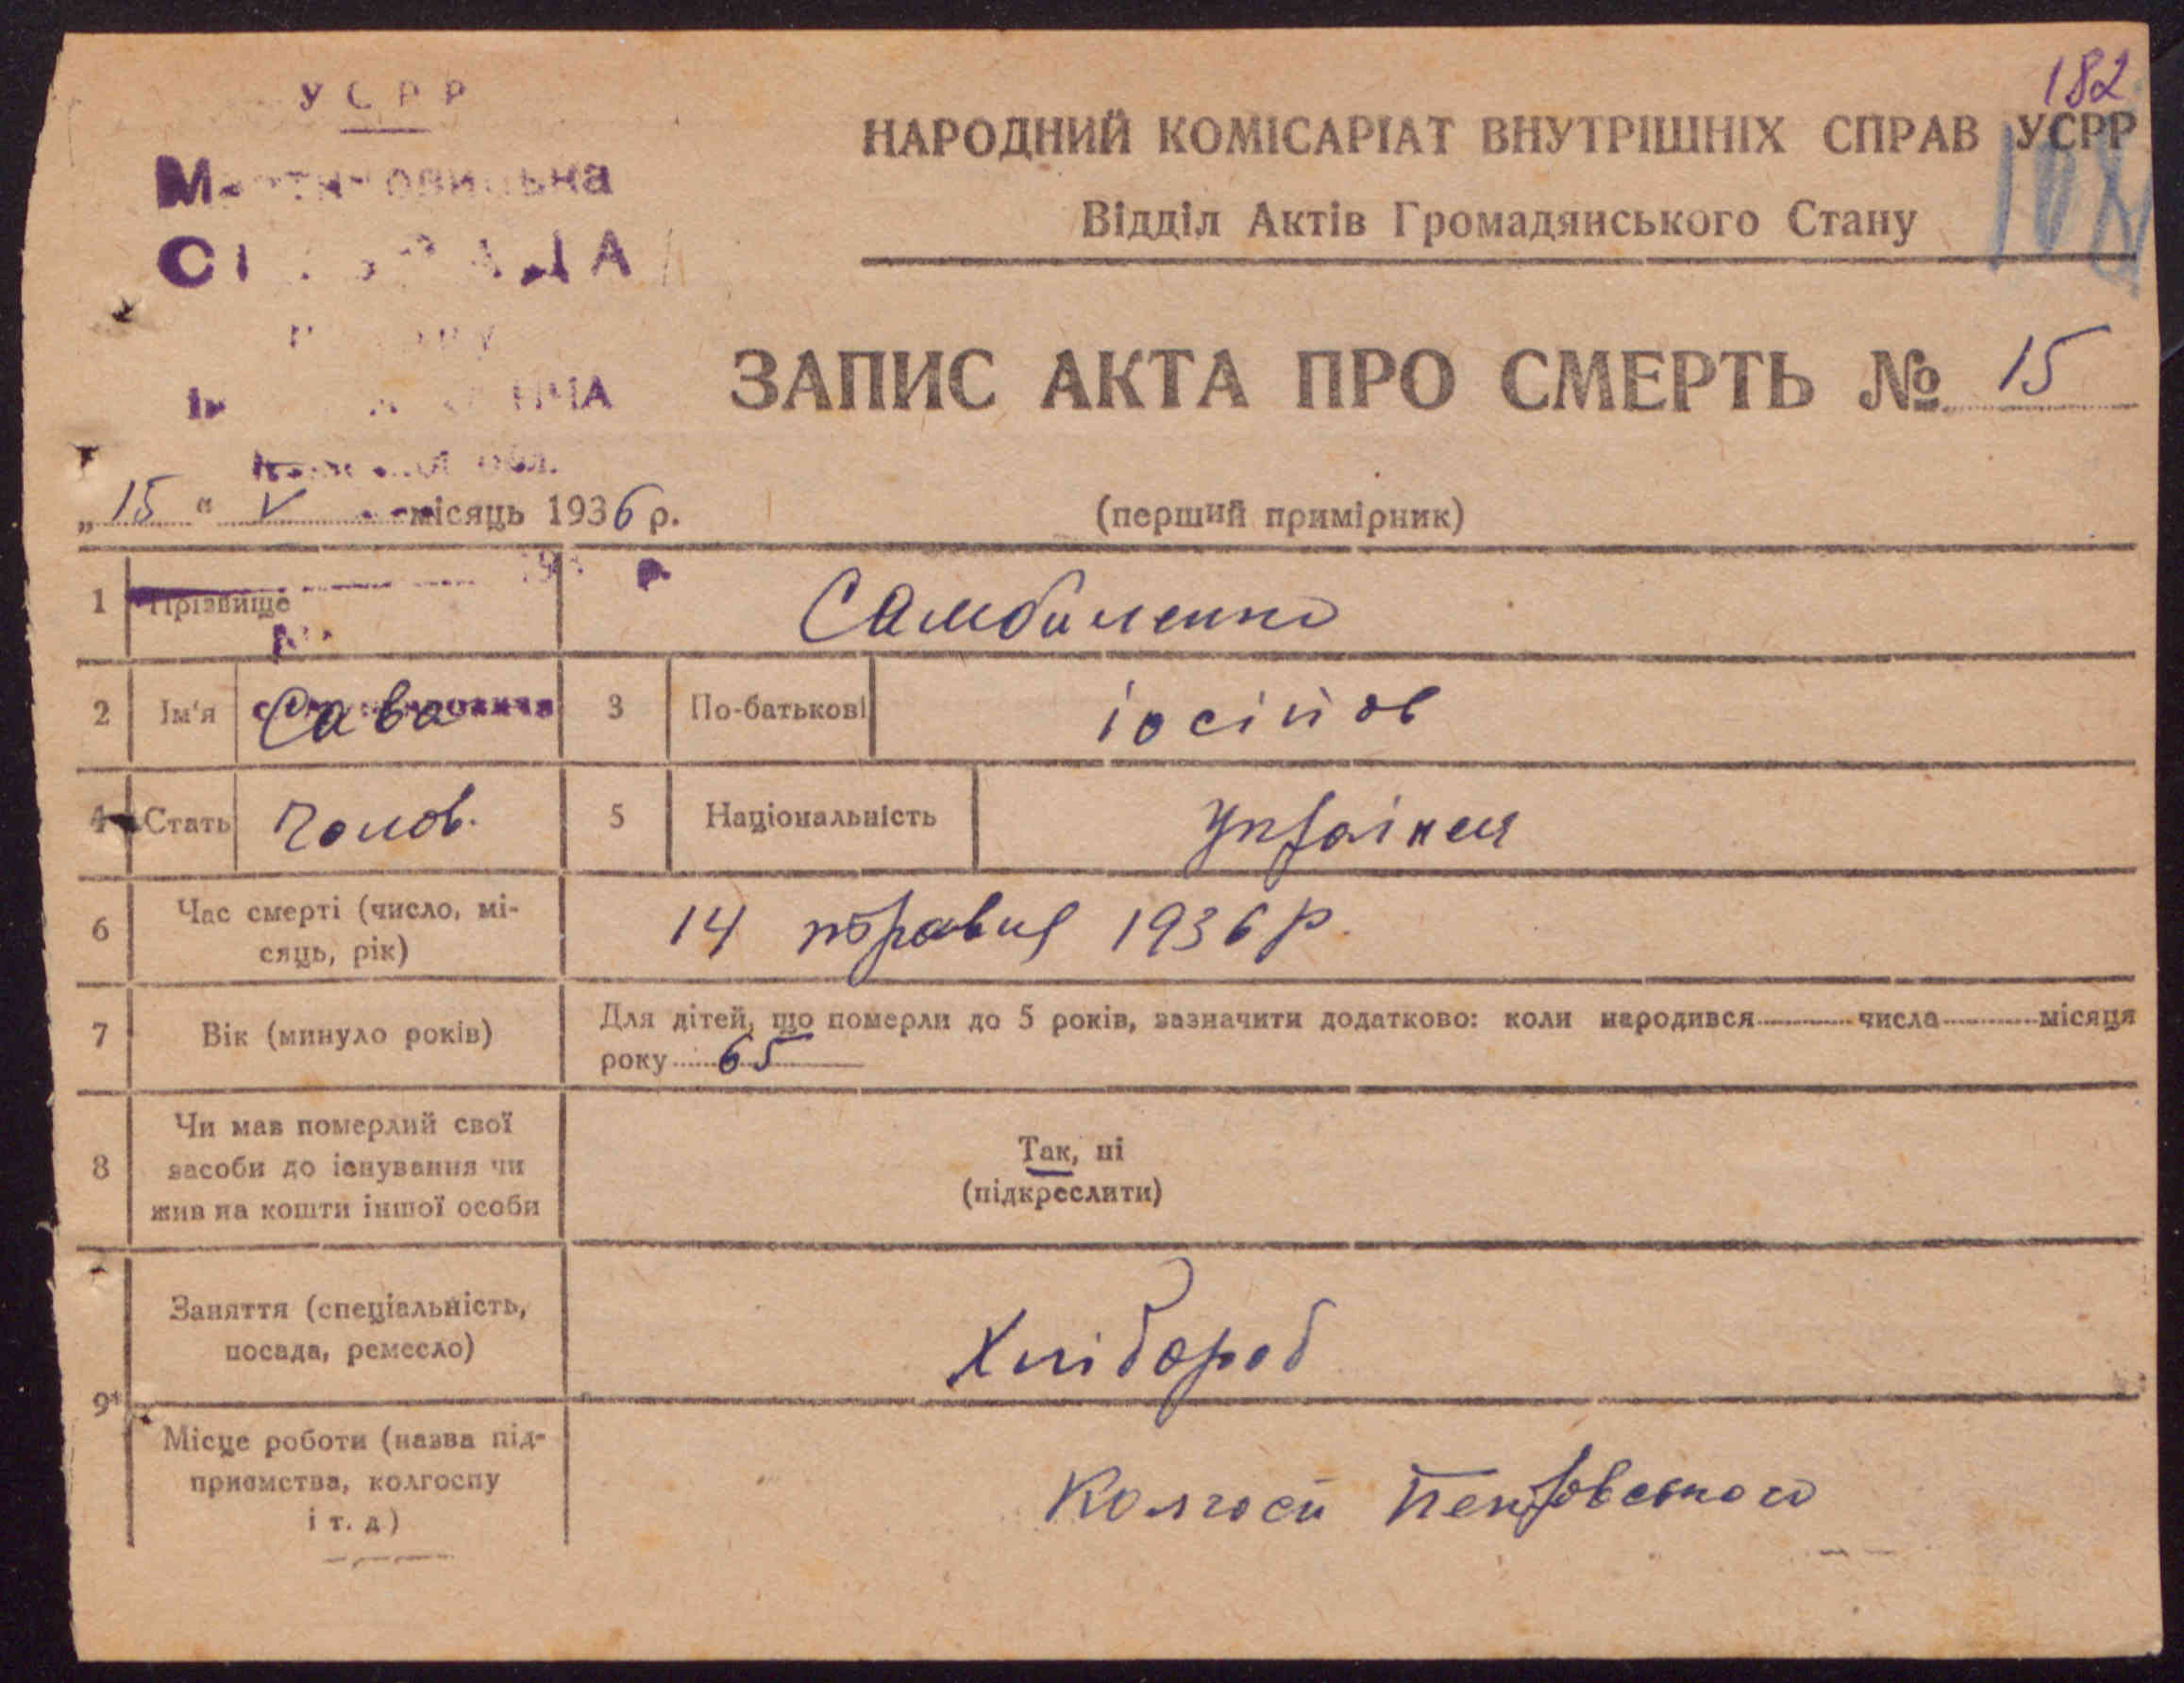 182
УСРР
НАРОДНИЙ КОМІСАРІАТ ВНУТРІШНІХ СПРАВ УСРР
108
Відділ Актів Громадянського Стану
ЗАПИС АКТА ПРО СМЕРТЬ № 15
обл.
„15“ V місяць 1936 р.
(перший примірник)
1 Прізвище
2 Ім'я Сава 3 По-батькові іосіпов
4 Стать Чолов. 5 Національність
6 Час смерті (число, мі-
сяць, рік)
14 травня 1936 р.
7 Вік (минуло років)
Для дітей, що померли до 5 років, зазначити додатково: коли народився числа місяця
року 65
8 Чи мав померлий свої
засоби до існування чи
жив на кошти іншої особи
Так, ні
(підкреслити)
9 Заняття (спеціальність,
посада, ремесло)
Хлібороб
Місце роботи (назва під-
приємства, колгоспу
і т. д)
Колгосп Петровського